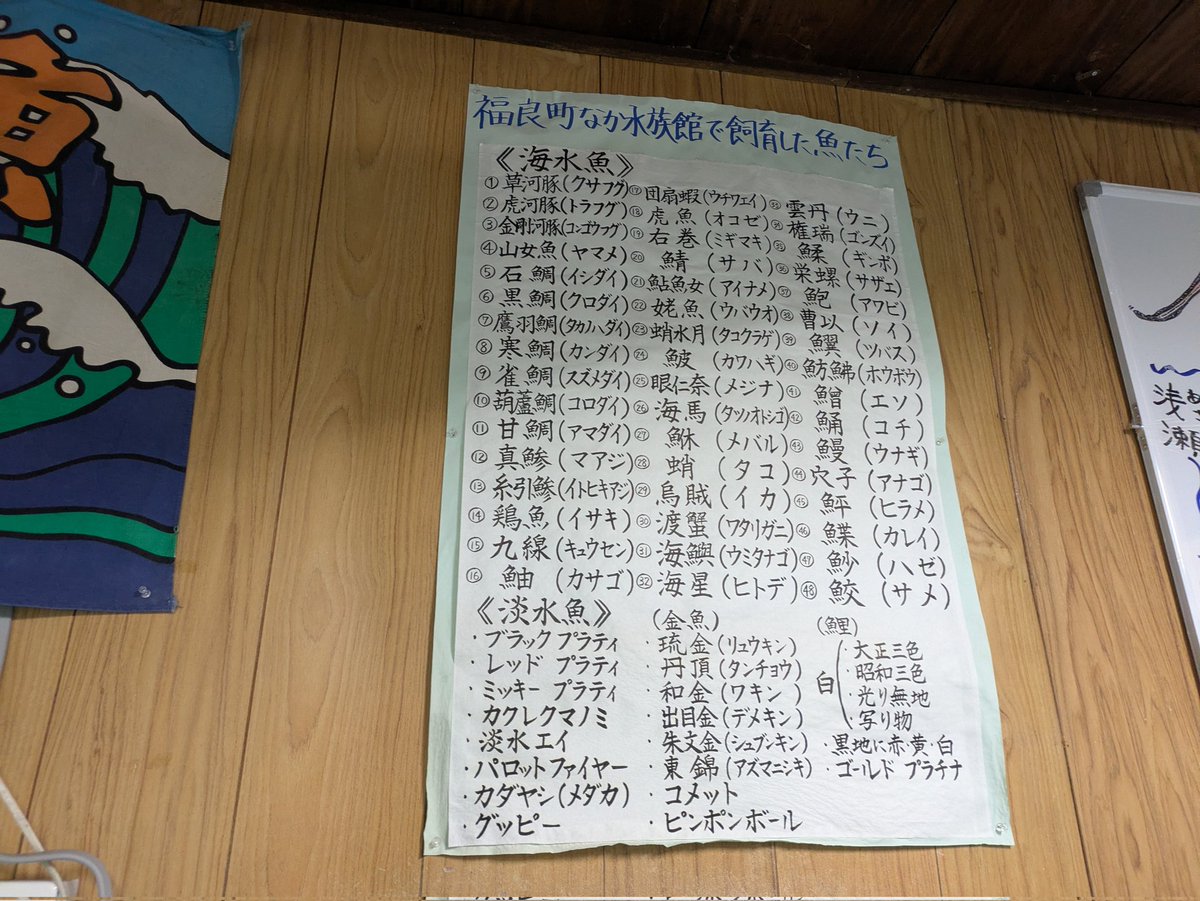 福良町なか水族館で飼育した魚たち
《海水魚》
①草河豚(クサフグ)
②虎河豚(トラフグ)
③金剛河豚(コンゴウフグ)
④山女魚(ヤマメ)
⑤石鯛(イシダイ)
⑥黒鯛(クロダイ)
⑦鷹羽鯛(タカノハダイ)
⑧寒鯛(カンダイ)
⑨雀鯛(スズメダイ)
⑩葫蘆鯛(コロダイ)
⑪甘鯛(アマダイ)
⑫真鯵(マアジ)
⑬糸引鯵(イトヒキアジ)
⑭鶏魚(イサキ)
⑮九線(キュウセン)
⑯鮋(カサゴ)
⑰団扇蝦(ウチワエイ)
⑱虎魚(オコゼ)
⑲右巻(ミギマキ)
⑳鯖(サバ)
㉑鮎魚女(アイナメ)
㉒姥魚(ウバウオ)
㉓蛸水月(タコクラゲ)
㉔鮍(カワハギ)
㉕眼仁奈(メジナ)
㉖海馬(タツノオトシゴ)
㉗鮴(メバル)
㉘蛸(タコ)
㉙烏賊(イカ)
㉚渡蟹(ワタリガニ)
㉛海鱮(ウミタナゴ)
㉜海星(ヒトデ)
雲丹(ウニ)
権瑞(ゴンズイ)
鰇(ギンポ)
栄螺(サザエ)
㊲鮑(アワビ)
㊳曹以(ソイ)
㊴鰯(ツバス)
㊵魴鮄(ホウボウ)
㊶鱛(エソ)
㊷鯒(コチ)
㊸鰻(ウナギ)
㊹穴子(アナゴ)
㊺鮃(ヒラメ)
㊻鰈(カレイ)
㊼魦(ハゼ)
㊽鮫(サメ)
《淡水魚》
・ブラックプラティ
・レッド プラティ
・ミッキー プラティ
・カクレクマノミ
・淡水エイ
・パロットファイヤー
・カダヤシ(メダカ)
・グッピー
(金魚)
・琉金(リュウキン)
・丹頂(タンチョウ)
・和金(ワキン)
・出目金(デメキン)
・朱文金(シュブンキン)
・東錦(アズマニシキ)
・コメット
・ピンポンボール
(鯉)
白
・大正三色
・昭和三色
・光り無地
・写り物
・黒地に赤・黄・白
・ゴールド プラチナ